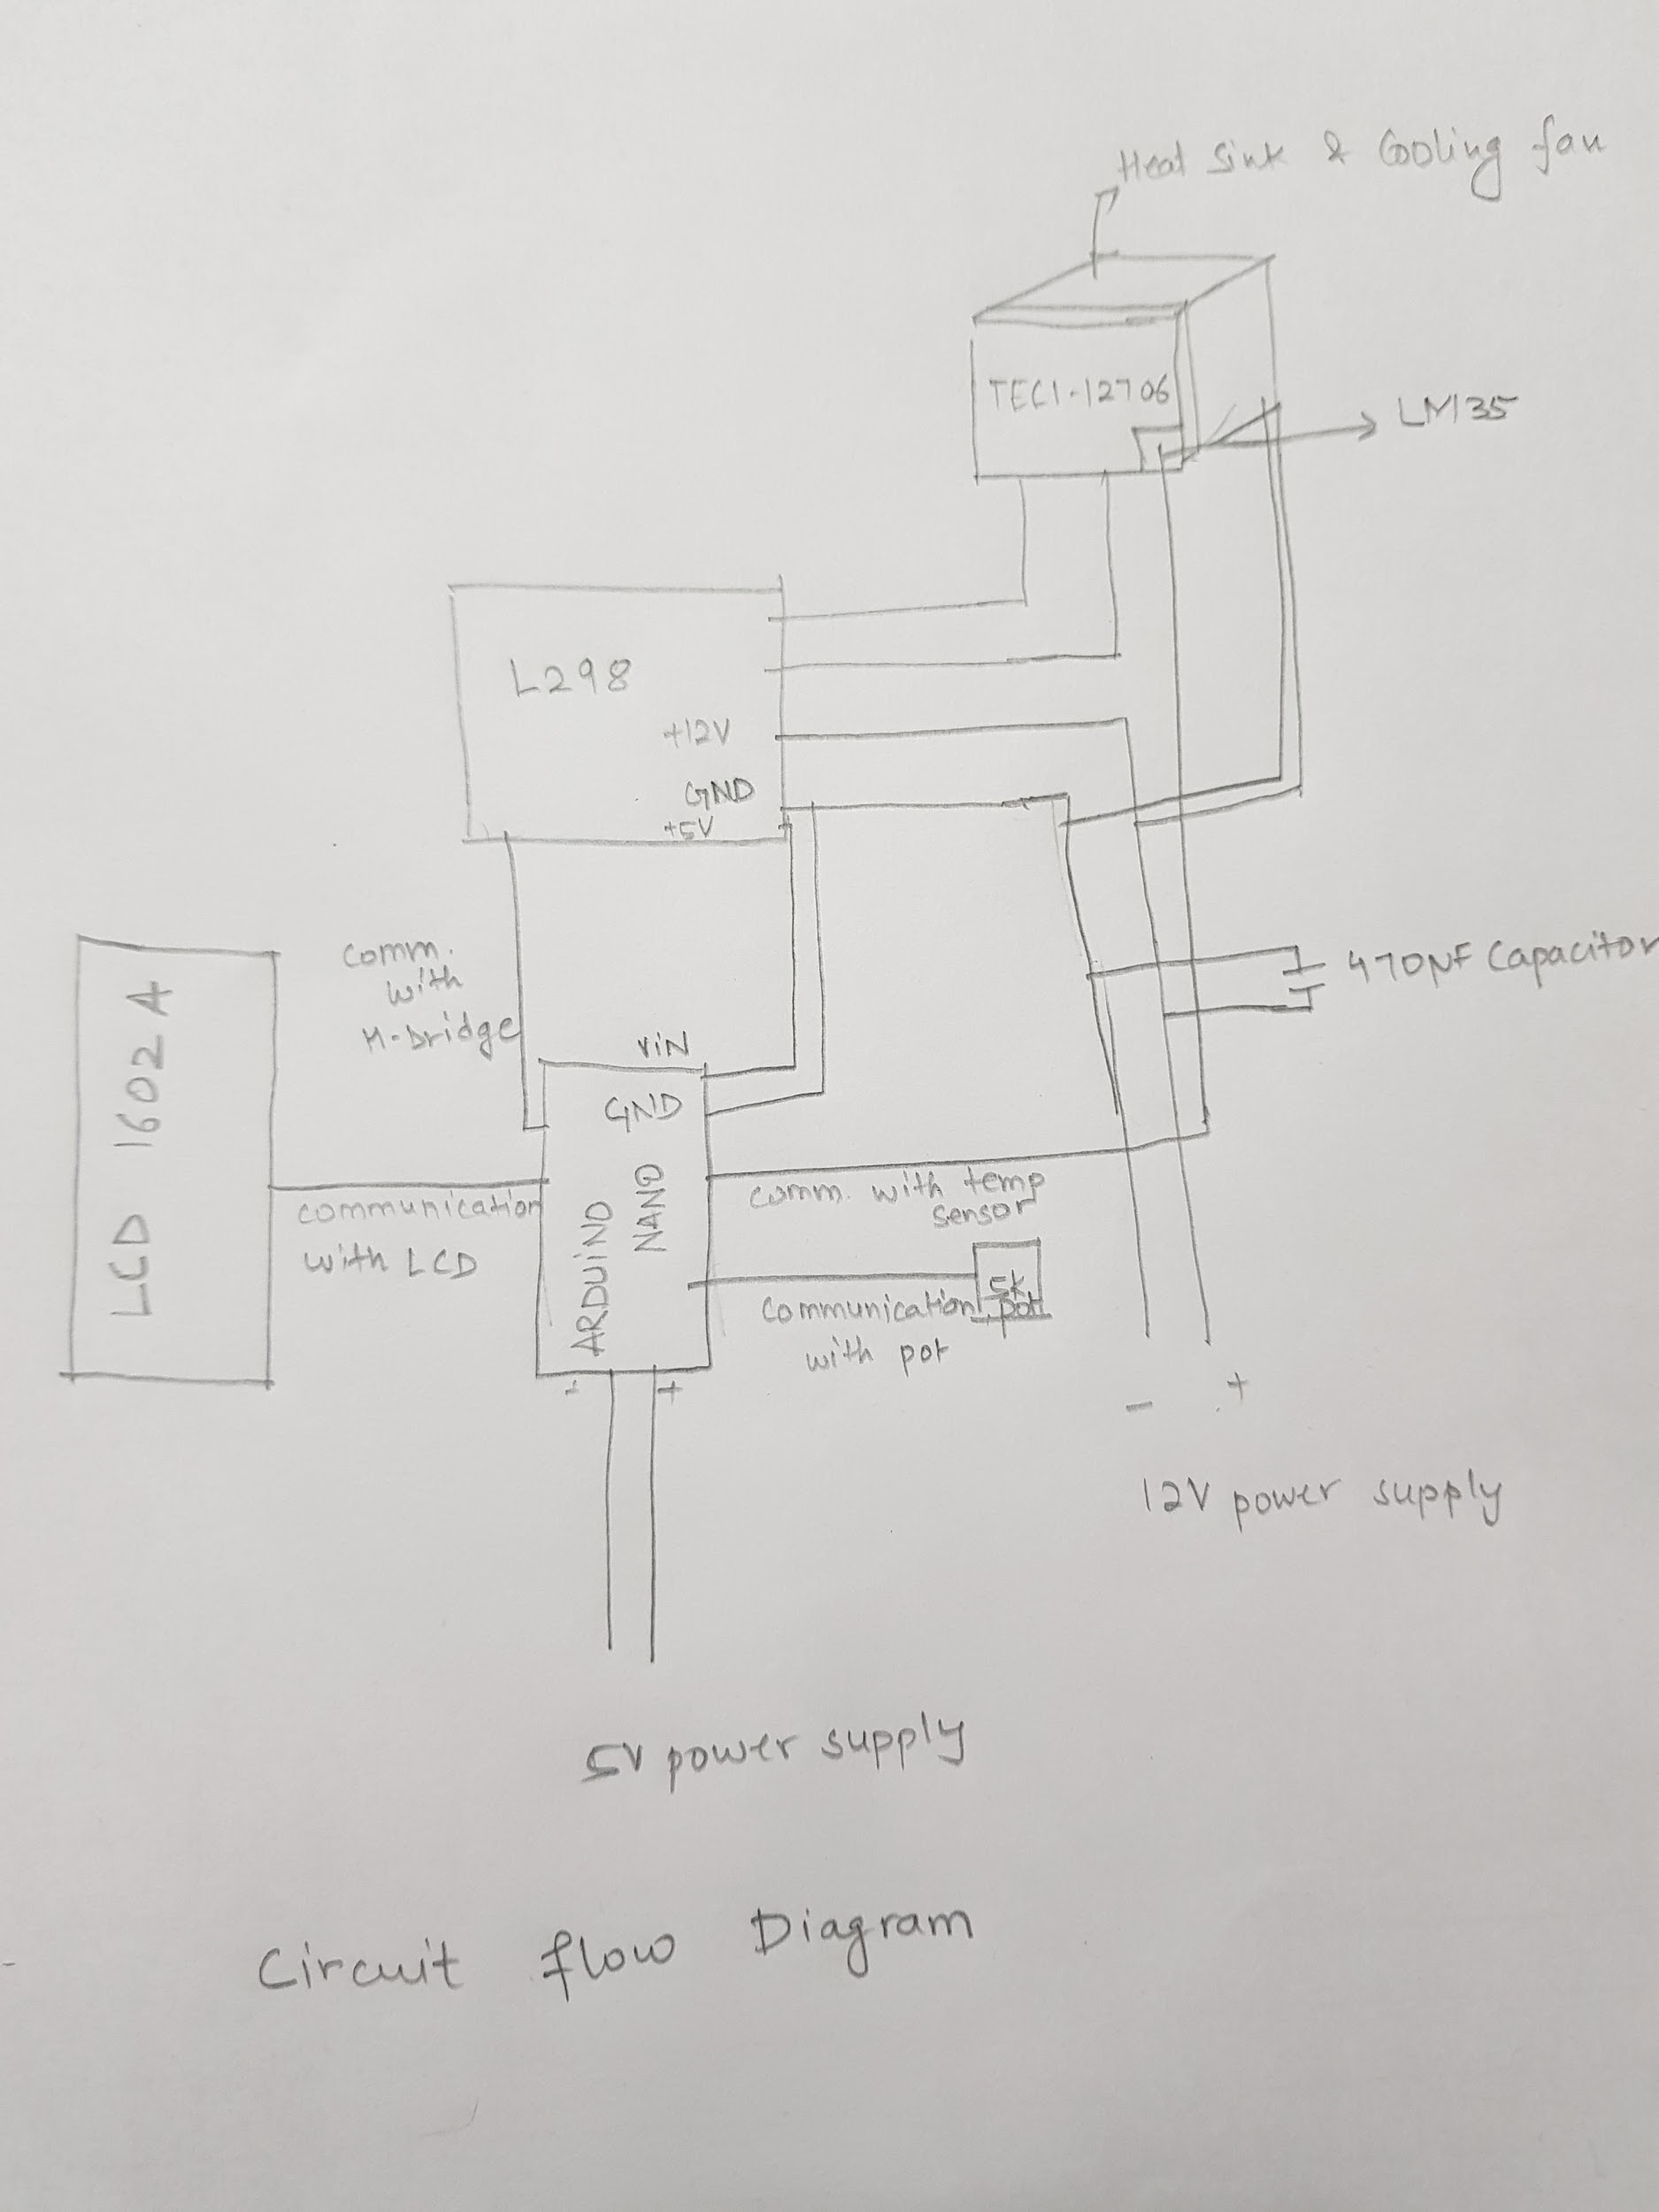 Heat Sink & Cooling fan
TEC1-12706
LM35
L298
+12V
GND
+5V
comm.
with
H-bridge
470µF Capacitor
LCD 1602 A
ViN
GND
ARDUiNO
NANO
communication
with LCD
comm. with temp
sensor
5k
pot
communication
with pot
- +
- +
12V power supply
5V power supply
Circuit flow Diagram